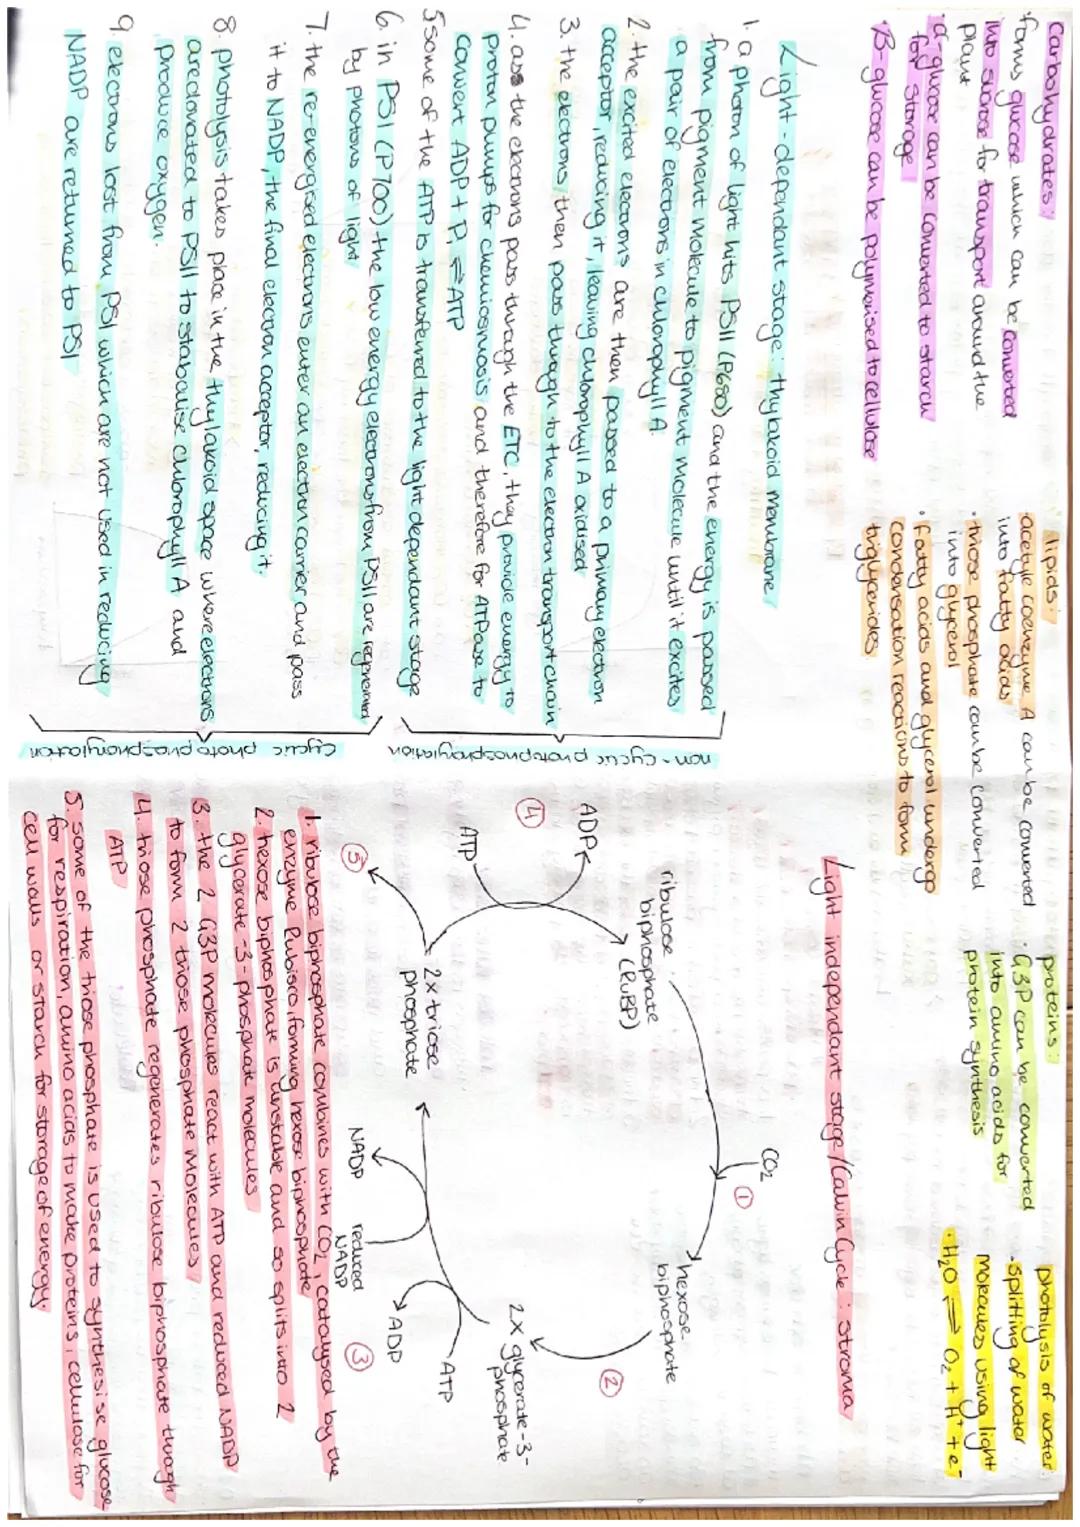 Carbohydrates:
·forms glucose which can be converted
into sucrose for transport around the
plant
·α-glucose can be converted to starch
for storage
·B-glucose can be polymerised to cellulose
lipids:
·acetyle coenzyme A can be converted
into fatty acids
·triose phosphate can be converted
into glycerol
·fatty acids and glycerol undergo
condensation reactions to form
triglycerides.
proteins:
·G3P can be converted
into amino acids for
protein synthesis
photolysis of water:
·splitting of water
molecules using light
·H₂O ⇌ O₂ + H⁺ + e⁻
Light-dependant stage: thylakoid membrane
1. a photon of light hits PSII (P680) and the energy is passed
from pigment molecule to pigment molecule until it excites
a pair of electrons in chlorophyll A.
2. the excited electrons are then passed to a primary electron
acceptor, reducing it, leaving chlorophyll A oxidised
3. the electrons then pass through to the electron transport chain
4. ass the electrons pass through the ETC, they provide energy to
proton pumps for chemiosmosis and therefore for ATPase to
convert ADP + Pi ⇌ ATP
5 some of the ATP is transferred to the light dependant stage
6. in PSI (P700) the low energy electrons from PSII are regenerated
by photons of light
7. the re-energised electrons enter an electron carrier and pass
it to NADP, the final electron acceptor, reducing it.
8. photolysis takes place in the thylakoid space where electrons
are donated to PSII to stabalise chlorophyll A and
produce oxygen.
9. electrons lost from PSI which are not used in reducing
NADP are returned to PSI
non-cyclic photophosphorylation
cyclic photophosphorylation
Light independant stage/Calvin Cycle: stroma
CO₂
①
ribulose
biphosphate
(RuBP)
hexose
biphosphate
②
ADP
④
ATP
2x glycerate-3-
phosphate
2x triose
phosphate
⑤
ATP
ADP
③
NADP
reduced
NADP
1. ribulose biphosphate combines with CO₂, catalysed by the
enzyme Rubisco, forming hexose biphosphate
2. hexose biphosphate is unstable and so splits into 2
glycerate-3-phosphate molecules
3. the 2 G3P molecules react with ATP and reduced NADP
to form 2 triose phosphate molecules
4. triose phosphate regenerates ribulose biphosphate through
ATP
5. some of the triose phosphate is used to synthesise glucose
for respiration, amino acids to make proteins, cellulose for
cell walls or starch for storage of energy